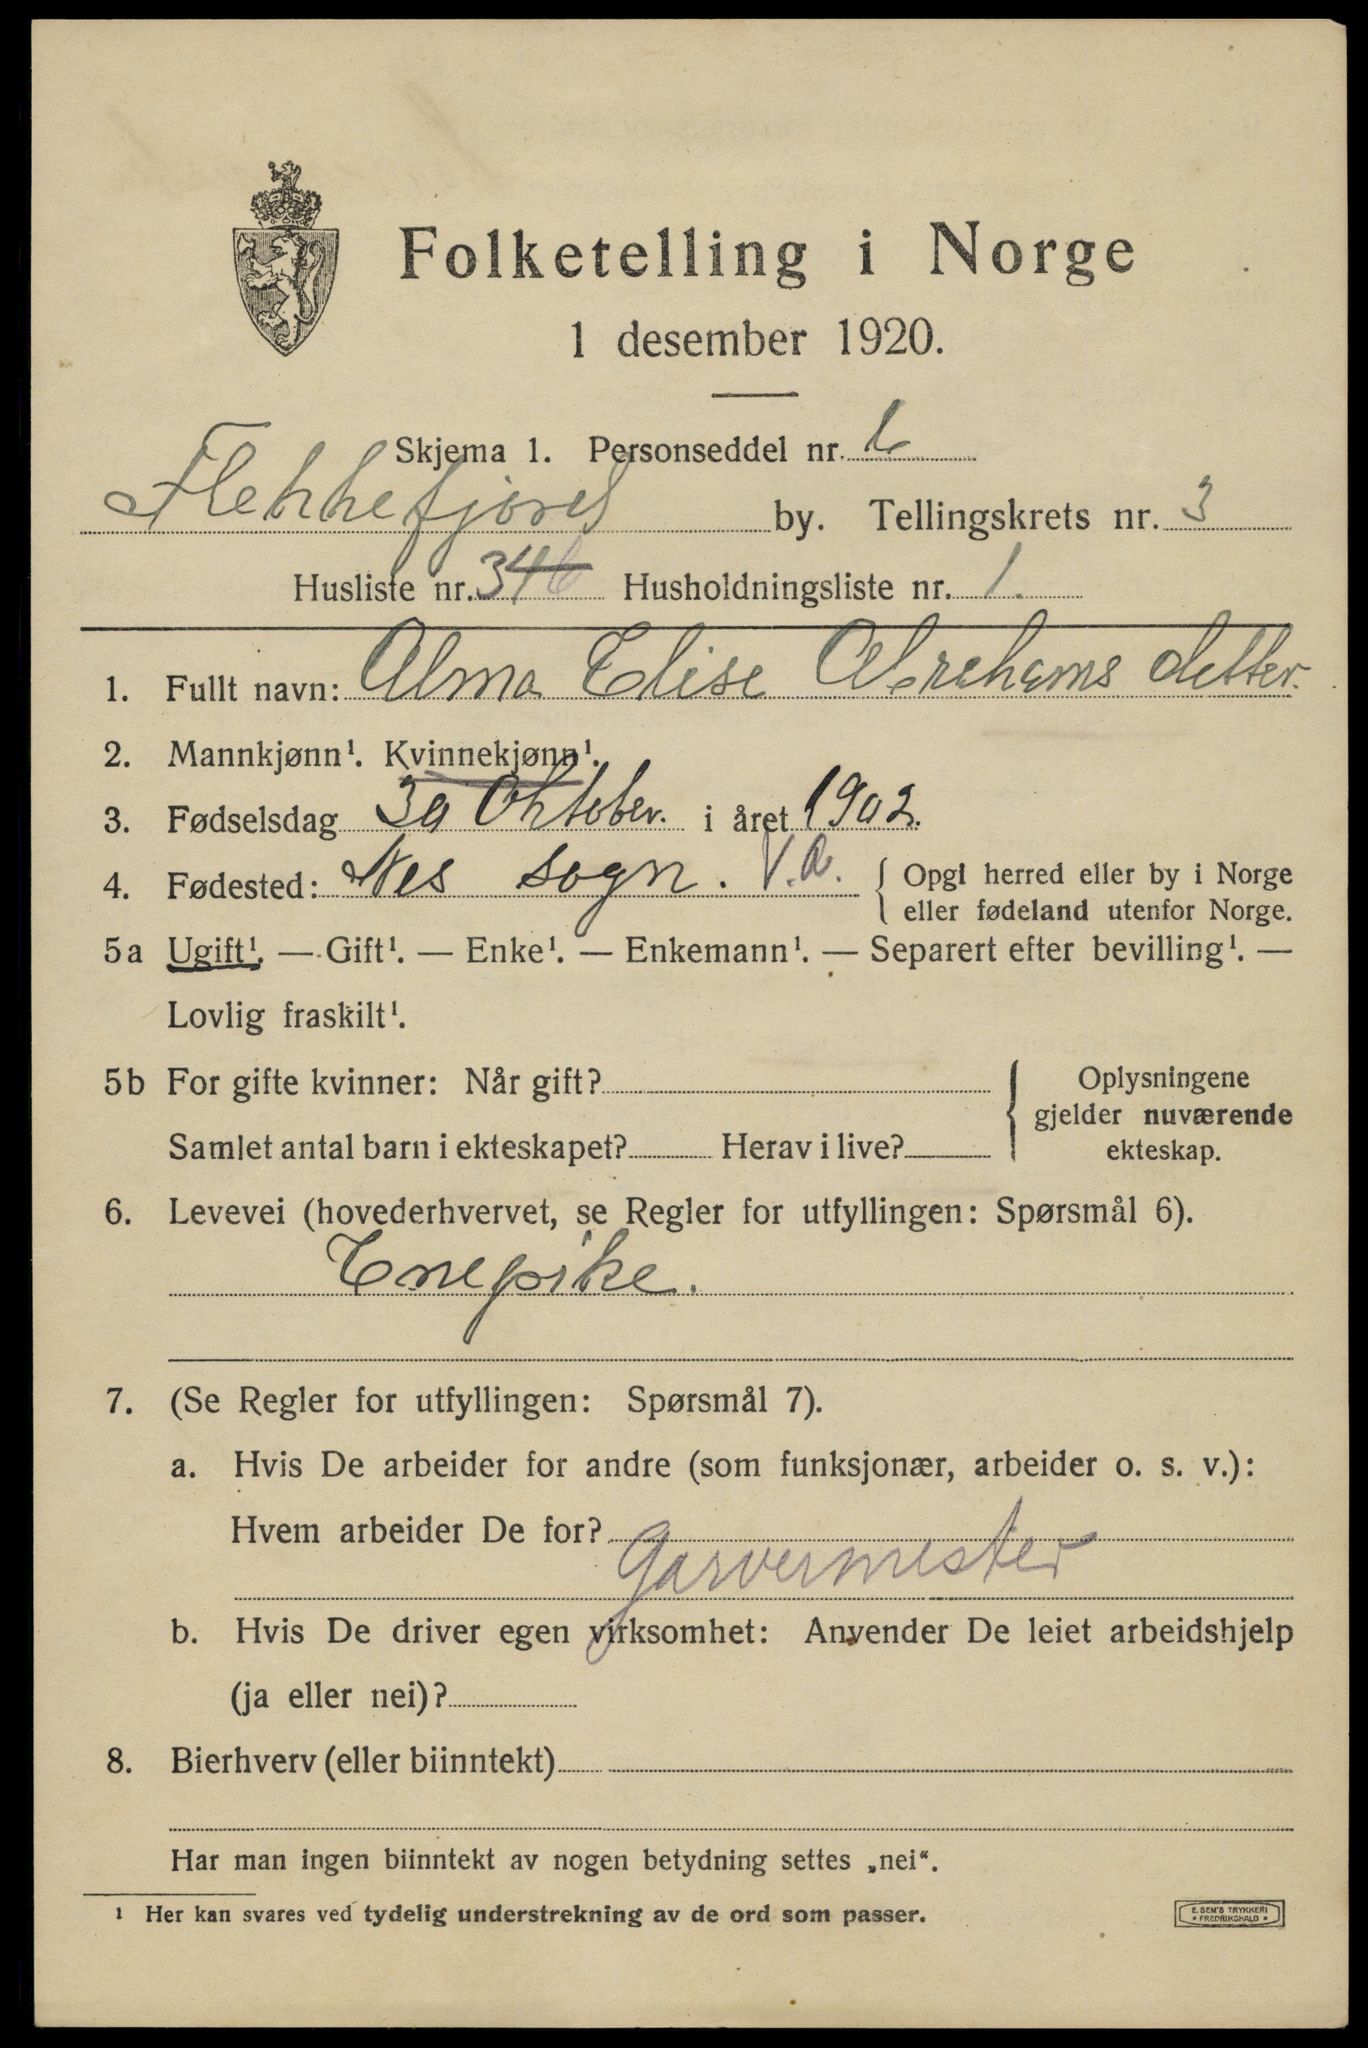 Folketelling i Norge
1 desember 1920.
Skjema 1. Personseddel nr. 6
Flekkefjord by. Tellingskrets nr. 3
Husliste nr. 34 6 Husholdningsliste nr. 1.
1. Fullt navn: Alma Elise Abrehams detter.
2. Mannkjønn¹. Kvinnekjønn¹.
3. Fødselsdag 30 Oktober. i året 1902.
4. Fødested: Nes sogn. V.a. { Opgi herred eller by i Norge
eller fødeland utenfor Norge.
5a Ugift¹. — Gift¹. — Enke¹. — Enkemann¹. — Separert efter bevilling¹. —
Lovlig fraskilt¹.
5b For gifte kvinner: Når gift? { Oplysningene
gjelder nuværende
Samlet antal barn i ekteskapet? Herav i live? ekteskap.
6. Levevei (hovederhvervet, se Regler for utfyllingen: Spørsmål 6).
Enepike.
7. (Se Regler for utfyllingen: Spørsmål 7).
a. Hvis De arbeider for andre (som funksjonær, arbeider o. s. v.):
Hvem arbeider De for?
Garvermester
b. Hvis De driver egen virksomhet: Anvender De leiet arbeidshjelp
(ja eller nei)?
8. Bierhverv (eller biinntekt)
Har man ingen biinntekt av nogen betydning settes „nei“.
¹ Her kan svares ved tydelig understrekning av de ord som passer.
E. SEM'S TRYKKERI
* FREDRIKSHALD *